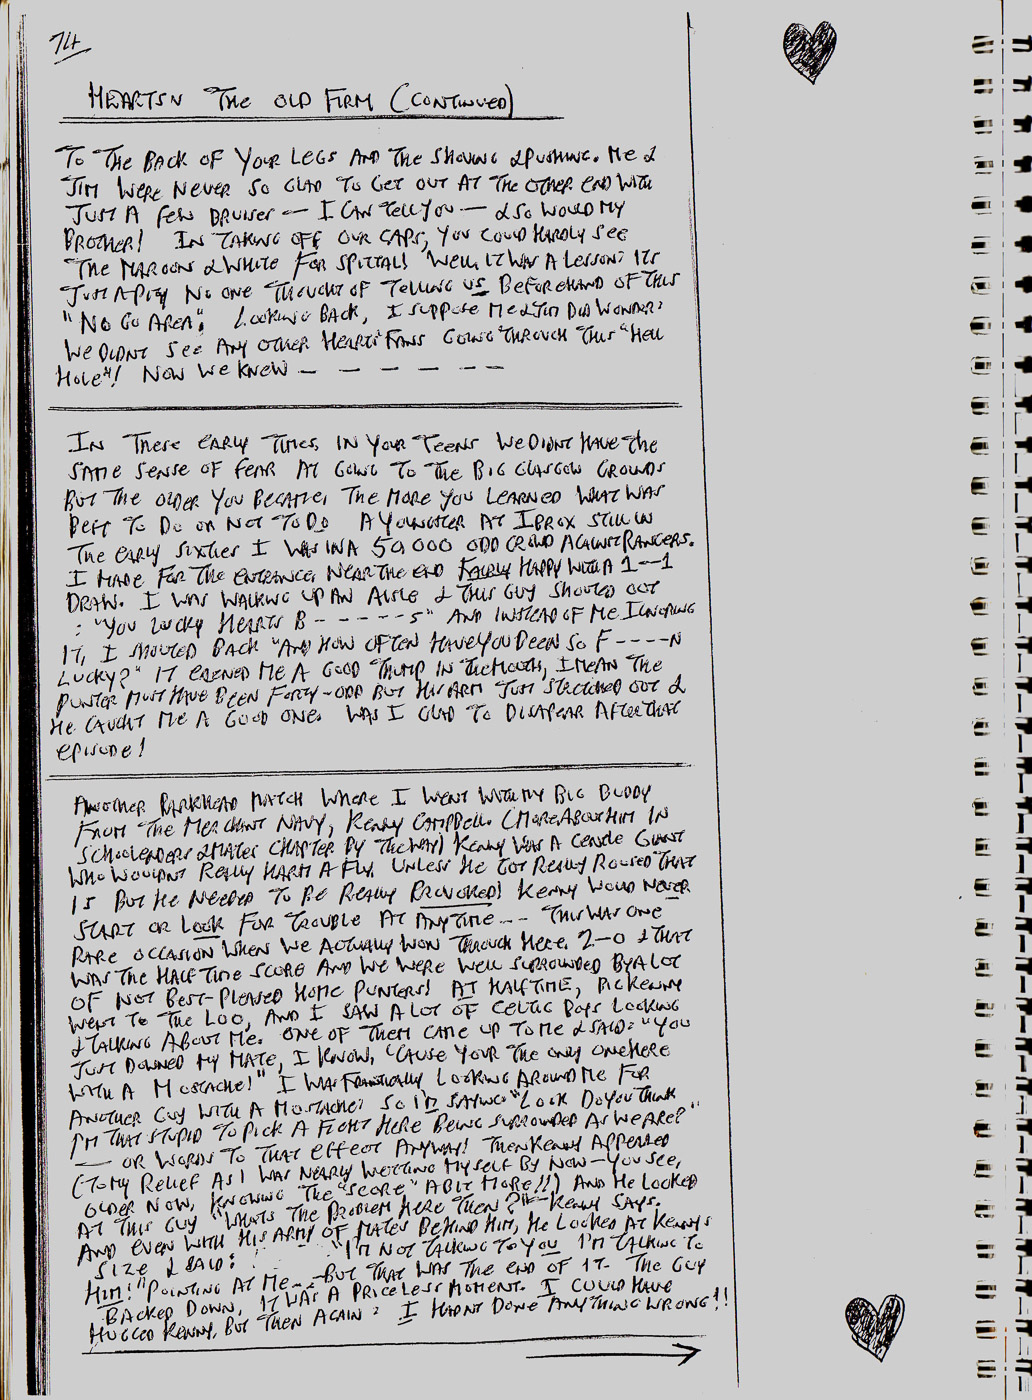 74
HEARTS N THE OLD FIRM (CONTINUED)
TO THE BACK OF YOUR LEGS AND THE SHOVING & PUSHING. ME &
JIM WERE NEVER SO GLAD TO GET OUT AT THE OTHER END WITH
JUST A FEW BRUISES — I CAN TELL YOU — & SO WOULD MY
BROTHER! IN TAKING OFF OUR CAPS, YOU COULD HARDLY SEE
THE MAROON & WHITE FOR SPITTAL! WELL, IT WAS A LESSON: ITS
JUST A PITY NO ONE THOUGHT OF TELLING US BEFOREHAND OF THIS
"NO GO AREA". LOOKING BACK, I SUPPOSE ME & JIM DID WONDER:
WE DIDNT SEE ANY OTHER HEARTS FANS GOING THROUGH THIS "HELL
HOLE"! NOW WE KNEW – – – – – – –
IN THESE EARLY TIMES, IN YOUR TEENS WE DIDNT HAVE THE
SAME SENSE OF FEAR AT GOING TO THE BIG GLASGOW GROUNDS
BUT THE OLDER YOU BECAME, THE MORE YOU LEARNED WHAT WAS
BEST TO DO OR NOT TO DO A YOUNGSTER AT IBROX STILL IN
THE EARLY SIXTIES I WAS IN A 50,000 ODD CROWD AGAINST RANGERS.
I MADE FOR THE ENTRANCE, NEAR THE END FAIRLY HAPPY WITH A 1--1
DRAW. I WAS WALKING UP AN AISLE & THIS GUY SHOUTED OUT
: "YOU LUCKY HEARTS B-----S" AND INSTEAD OF ME IGNORING
IT, I SHOUTED BACK "AND HOW OFTEN HAVE YOU BEEN SO F----N
LUCKY?" IT EARNED ME A GOOD THUMP IN THE MOUTH, I MEAN THE
PUNTER MUST HAVE BEEN FORTY-ODD BUT HIS ARM JUST STRETCHED OUT &
HE CAUGHT ME A GOOD ONE. WAS I GLAD TO DISAPEAR AFTER THAT
EPISODE!
ANOTHER PARKHEAD MATCH WHERE I WENT WITH MY BIG BUDDY
FROM THE MERCHANT NAVY, KENNY CAMPBELL. (MORE ABOUT HIM IN
SCHOOLENDERS & MATES CHAPTER BY THE WAY) KENNY WAS A GENTLE GIANT
WHO WOULDNT REALLY HARM A FLY. UNLESS HE GOT REALLY ROUSED THAT
IS BUT HE NEEDED TO BE REALLY PROVOKED! KENNY WOULD NEVER
START OR LOOK FOR TROUBLE AT ANYTIME -- THIS WAS ONE
RARE OCCASION WHEN WE ACTUALLY WON THROUGH HERE. 2–0 & THAT
WAS THE HALF TIME SCORE AND WE WERE WELL SURROUNDED BY A LOT
OF NOT BEST-PLEASED HOME PUNTERS! AT HALF TIME, KENNY
WENT TO THE LOO, AND I SAW A LOT OF CELTIC BOYS LOOKING
& TALKING ABOUT ME. ONE OF THEM CAME UP TO ME & SAID: "YOU
JUST DOWNED MY MATE, I KNOW, 'CAUSE YOUR THE ONLY ONE HERE
WITH A MOSTACHE!" I WAS FRANTICALLY LOOKING AROUND ME FOR
ANOTHER GUY WITH A MOSTACHE: SO I'M SAYING "LOOK DO YOU THINK
I'M THAT STUPID TO PICK A FIGHT HERE BEING SURROUNDED AS WE ARE?"
— OR WORDS TO THAT EFFECT ANYWAY! THEN KENNY APPEARED
(TO MY RELIEF AS I WAS NEARLY WETTING MYSELF BY NOW – YOU SEE,
OLDER NOW, KNOWING THE "SCORE" A BIT MORE!!) AND HE LOOKED
AT THIS GUY "WHATS THE PROBLEM HERE THEN?" KENNY SAYS.
AND EVEN WITH HIS ARMY OF MATES BEHIND HIM, HE LOOKED AT KENNYS
SIZE & SAID: "I'M NOT TALKING TO YOU I'M TALKING TO
HIM!" POINTING AT ME -- BUT THAT WAS THE END OF IT. THE GUY
BACKED DOWN, IT WAS A PRICELESS MOMENT. I COULD HAVE
HUGGED KENNY, BUT THEN AGAIN: I HADNT DONE ANYTHING WRONG!!